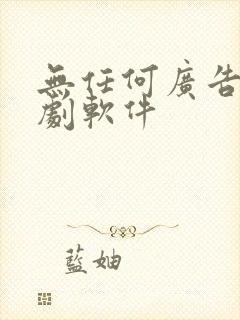 無任何廣告
劇軟件
藍妯